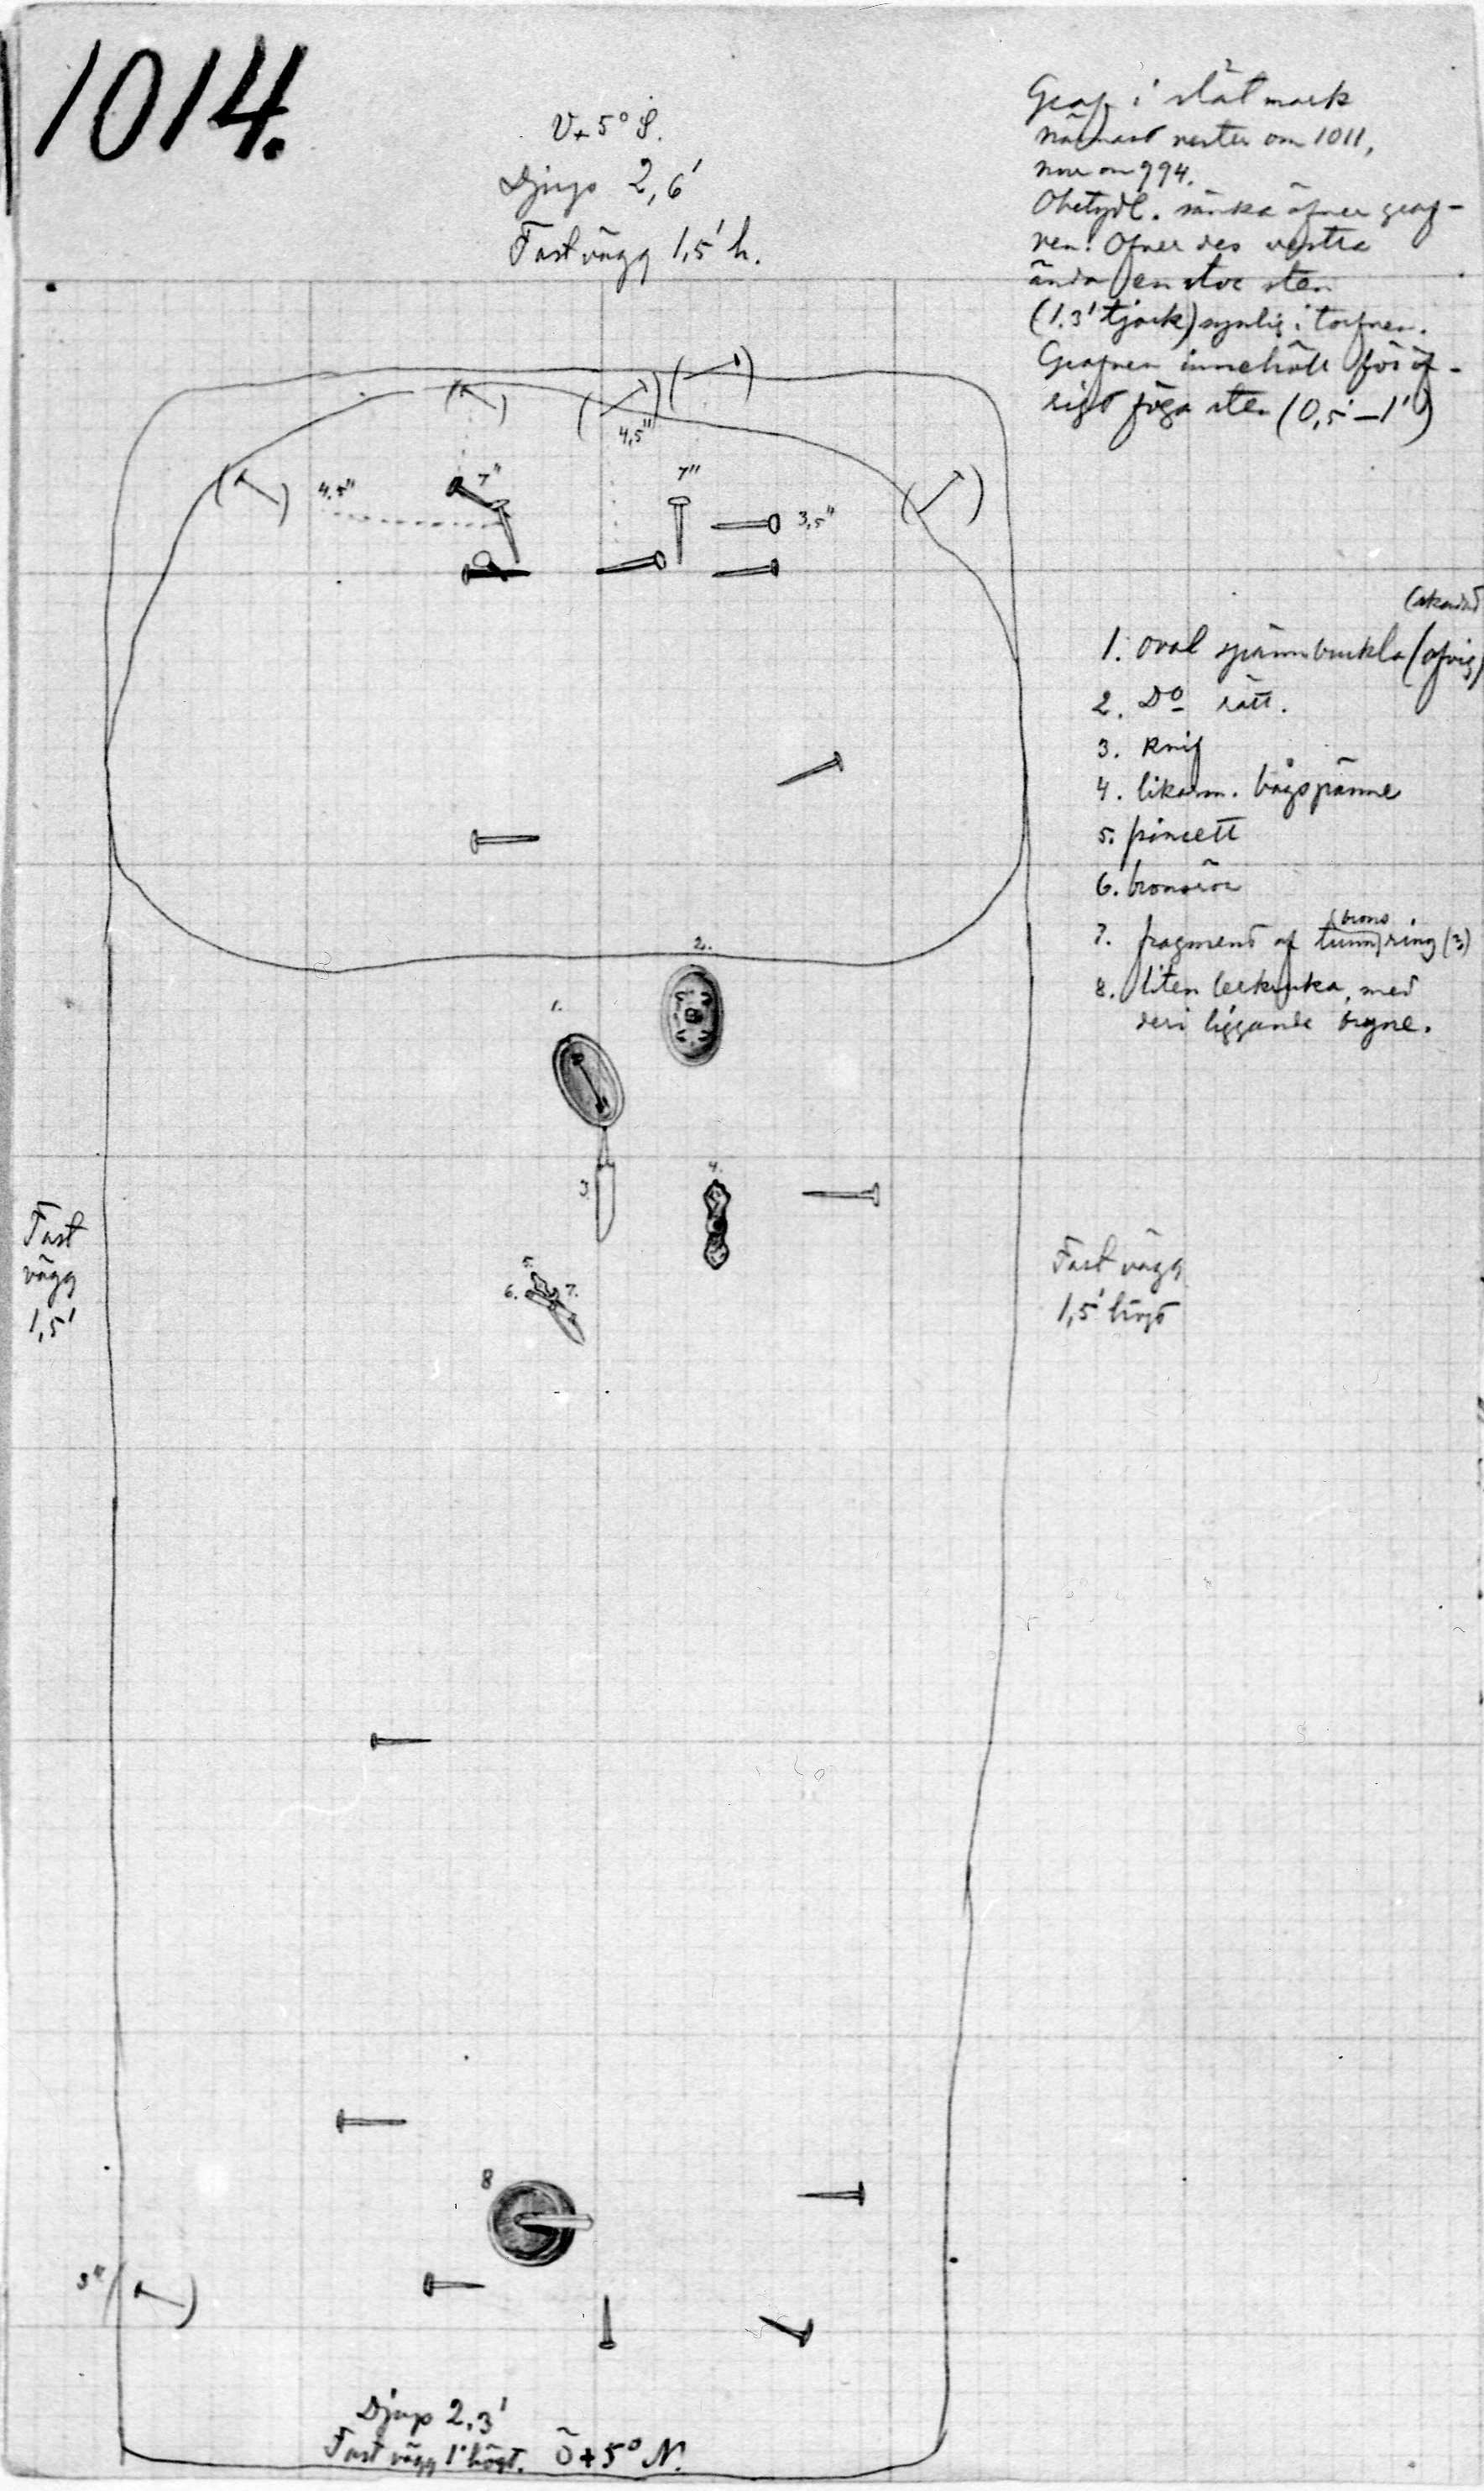 1014.
V+5° S.
Djup 2,6'
Fast vägg 1,5' h.
Graf i slät mark
närmast vester om 1011,
norr om 994.
Obetydl. sänka öfver graf-
ven. Öfver des vestra
ända en stor sten
(1.3' tjock) synlig i torfven.
Grafven innehöll för öf-
rigt föga sten (0,5'–1')
4,5"
4,5"
7"
7"
3,5"
(skadad
1. oval spännbuckla (afvig)
2. Do rätt.
3. Knif
4. likarm. bågspänne
5. pincett
6. bronsrör
7. fragment af tunn brons ring (3)
8. liten lerkruka, med
deri liggande bryne.
2.
1.
3
4.
5.
6.
7.
Fast
vägg
1,5'
Fast vägg
1,5' högt
8
3"
Djup 2,3'
Fast vägg 1' högt. Ö+5° N.